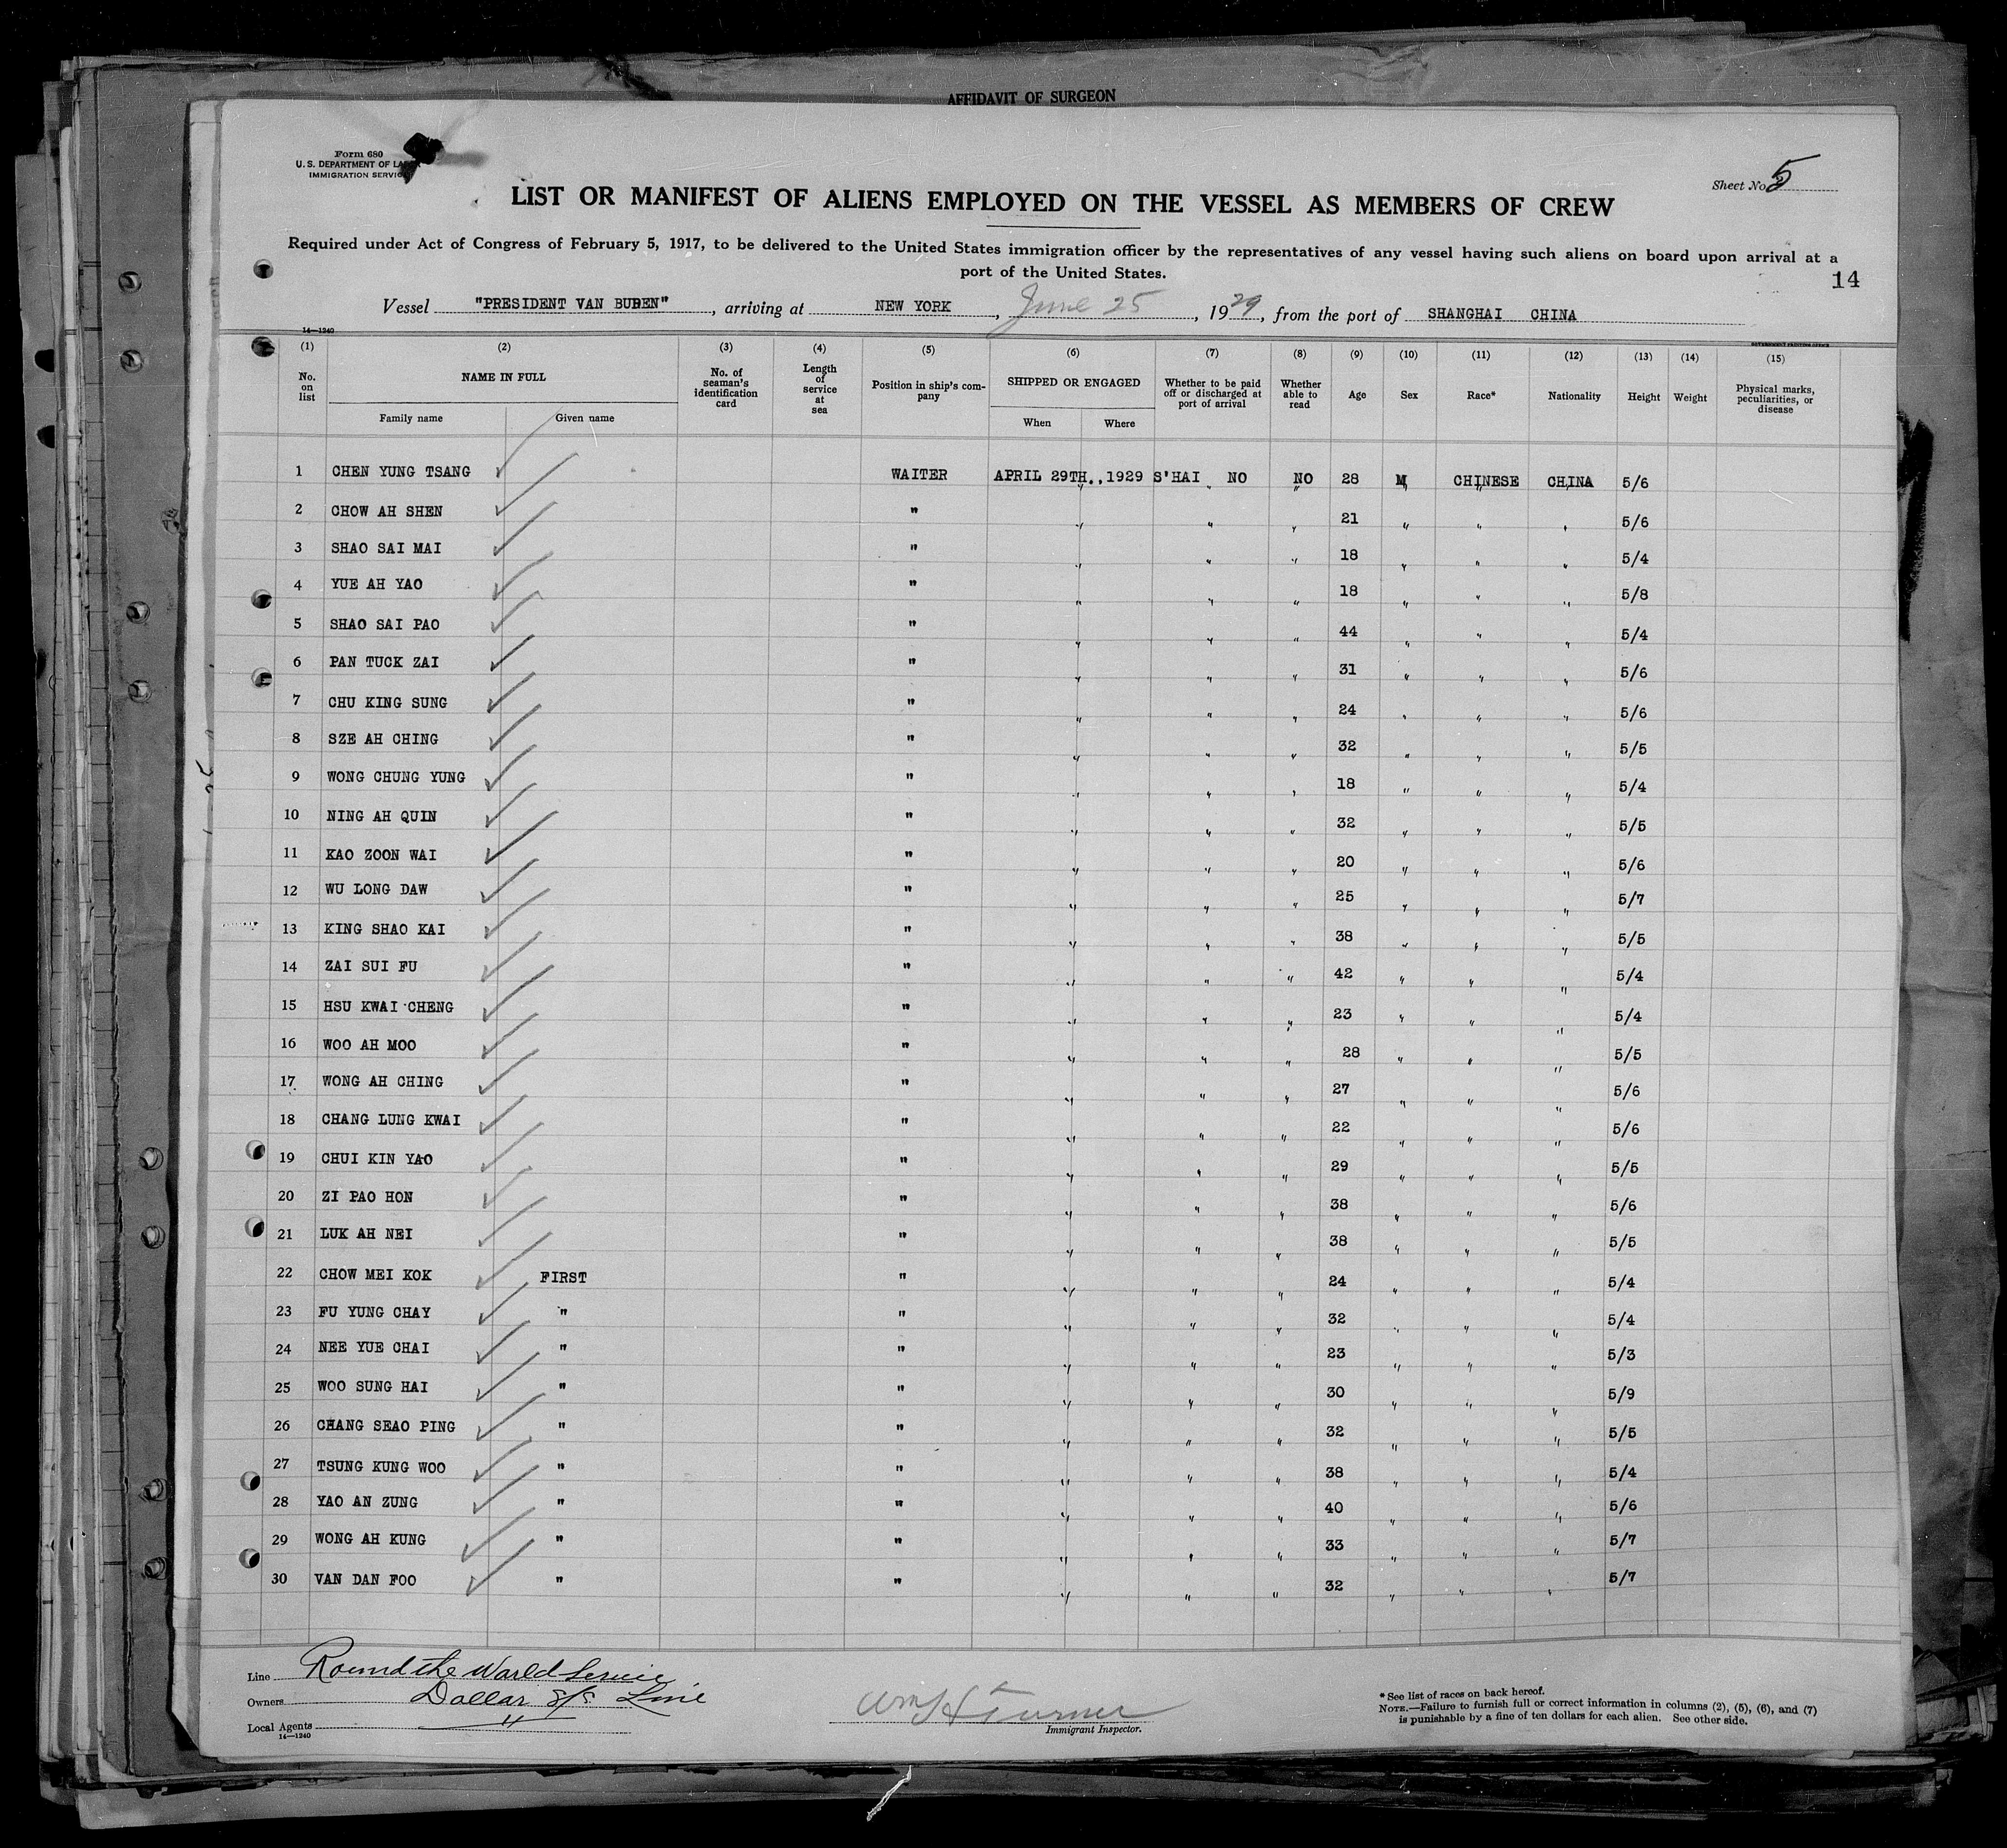 AFFIDAVIT OF SURGEON
Form 680
U. S. DEPARTMENT OF LABOR
IMMIGRATION SERVICE
Sheet No. 5
LIST OR MANIFEST OF ALIENS EMPLOYED ON THE VESSEL AS MEMBERS OF CREW
Required under Act of Congress of February 5, 1917, to be delivered to the United States immigration officer by the representatives of any vessel having such aliens on board upon arrival at a
port of the United States.
14
Vessel "PRESIDENT VAN BUREN", arriving at NEW YORK, June 25, 1929, from the port of SHANGHAI CHINA
14—1240
GOVERNMENT PRINTING OFFICE
(1) (2) (3) (4) (5) (6) (7) (8) (9) (10) (11) (12) (13) (14) (15)
No. on list NAME IN FULL No. of seaman's identification card Length of service at sea Position in ship's company SHIPPED OR ENGAGED Whether to be paid off or discharged at port of arrival Whether able to read Age Sex Race* Nationality Height Weight Physical marks, peculiarities, or disease
Family name Given name When Where
1 CHEN YUNG TSANG WAITER APRIL 29TH.,1929 S'HAI NO NO 28 M CHINESE CHINA 5/6
2 CHOW AH SHEN " " " " 21 " " " 5/6
3 SHAO SAI MAI " " " " 18 " " " 5/4
4 YUE AH YAO " " " " 18 " " " 5/8
5 SHAO SAI PAO " " " " 44 " " " 5/4
6 PAN TUCK ZAI " " " " 31 " " " 5/6
7 CHU KING SUNG " " " " 24 " " " 5/6
8 SZE AH CHING " " " " 32 " " " 5/5
9 WONG CHUNG YUNG " " " " 18 " " " 5/4
10 NING AH QUIN " " " " 32 " " " 5/5
11 KAO ZOON WAI " " " " 20 " " " 5/6
12 WU LONG DAW " " " " 25 " " " 5/7
13 KING SHAO KAI " " " " 38 " " " 5/5
14 ZAI SUI FU " " " " 42 " " " 5/4
15 HSU KWAI CHENG " " " " 23 " " " 5/4
16 WOO AH MOO " " " " 28 " " " 5/5
17 WONG AH CHING " " " " 27 " " " 5/6
18 CHANG LUNG KWAI " " " " 22 " " " 5/6
19 CHUI KIN YAO " " " " 29 " " " 5/5
20 ZI PAO HON " " " " 38 " " " 5/6
21 LUK AH NEI " " " " 38 " " " 5/5
22 CHOW MEI KOK FIRST " " " " 24 " " " 5/4
23 FU YUNG CHAY " " " " " 32 " " " 5/4
24 NEE YUE CHAI " " " " " 23 " " " 5/3
25 WOO SUNG HAI " " " " " 30 " " " 5/9
26 CHANG SEAO PING " " " " " 32 " " " 5/5
27 TSUNG KUNG WOO " " " " " 38 " " " 5/4
28 YAO AN ZUNG " " " " " 40 " " " 5/6
29 WONG AH KUNG " " " " " 33 " " " 5/7
30 VAN DAN FOO " " " " " 32 " " " 5/7
Line Round the World Service
Owners Dollar S/S Line
Local Agents "
14—1240
Wm H Turner
Immigrant Inspector.
* See list of races on back hereof.
NOTE.—Failure to furnish full or correct information in columns (2), (5), (6), and (7)
is punishable by a fine of ten dollars for each alien. See other side.